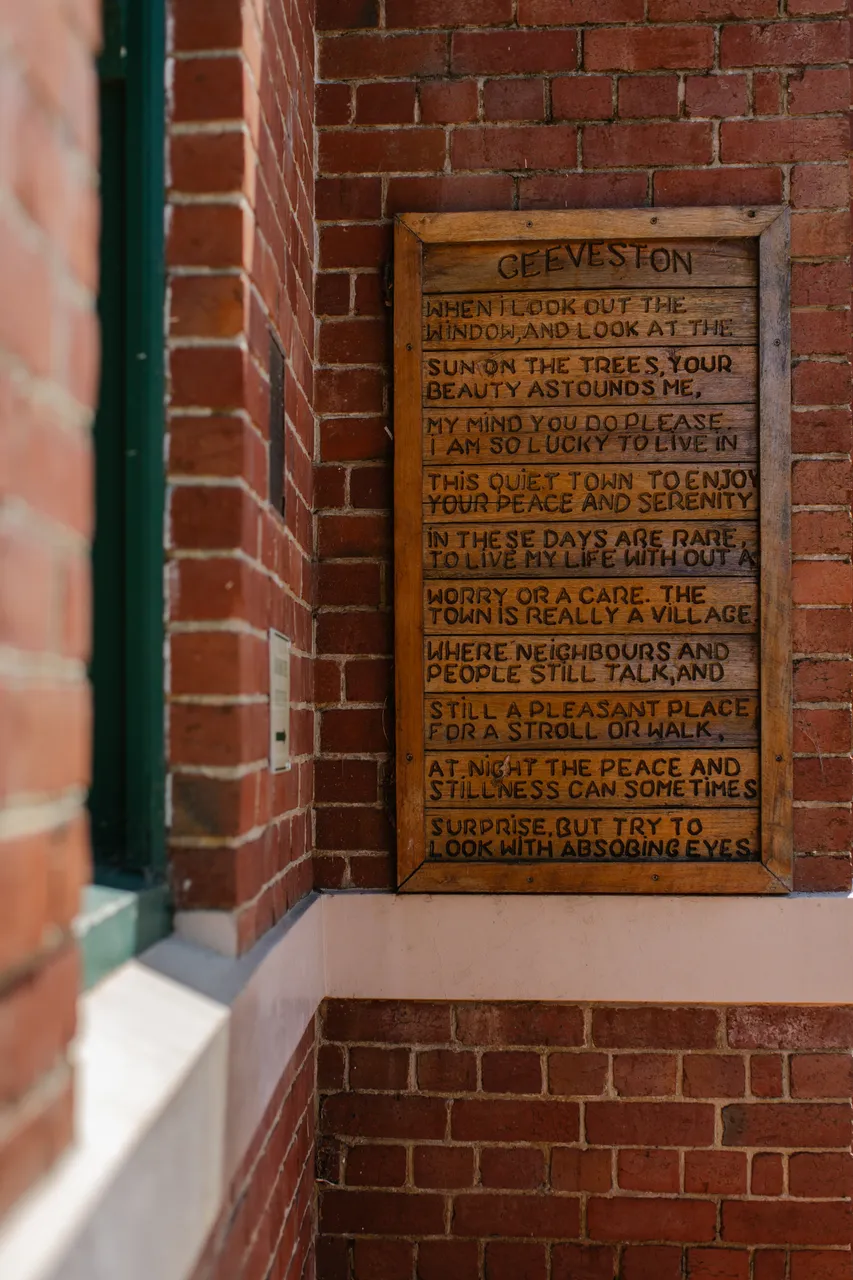 GEEVESTON
WHEN I LOOK OUT THE
WINDOW, AND LOOK AT THE
SUN ON THE TREES, YOUR
BEAUTY ASTOUNDS ME,
MY MIND YOU DO PLEASE.
I AM SO LUCKY TO LIVE IN
THIS QUIET TOWN TO ENJOY
YOUR PEACE AND SERENITY
IN THESE DAYS ARE RARE,
TO LIVE MY LIFE WITH OUT A
WORRY OR A CARE. THE
TOWN IS REALLY A VILLAGE
WHERE NEIGHBOURS AND
PEOPLE STILL TALK, AND
STILL A PLEASANT PLACE
FOR A STROLL OR WALK,
AT NIGHT THE PEACE AND
STILLNESS CAN SOMETIMES
SURPRISE, BUT TRY TO
LOOK WITH ABSOBING EYES